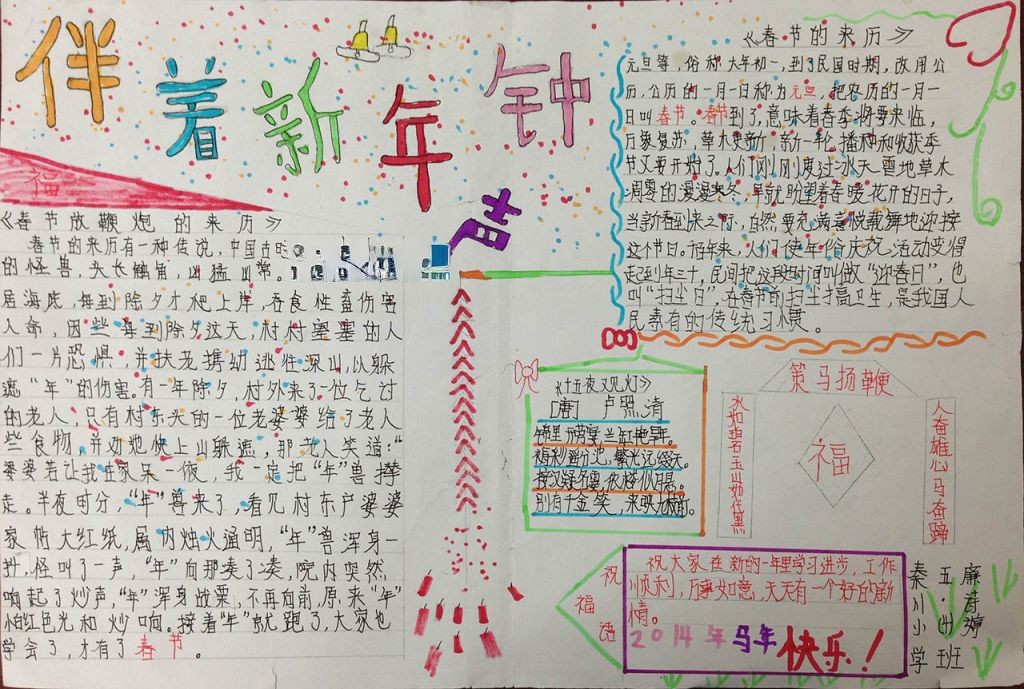 伴着新年钟声
《春节放鞭炮的来历》
春节的来历有一种传说,中国古时
的怪兽,头长触角,凶猛异常。
居海底,每到除夕才爬上岸,吞食牲畜伤害
人命,因些每到除夕这天,村村寨寨的人
们一片恐惧,并扶老携幼逃往深山,以躲
避“年”的伤害。有一年除夕,村外来了一位乞讨
的老人,只有村东头的一位老婆婆给了老人
些食物,并劝他快上山躲避,那老人笑道:“
婆婆若让我在家呆一夜,我一定把“年”兽撵
走。半夜时分,“年”兽来了,看见村东户婆婆
家帖大红纸,属内烛火通明,“年”兽浑身一
抖,怪叫了一声,“年”向那凑了凑,院内突然
响起了炒声,“年”浑身战栗,不再向前,原来“年”
怕红色光和炒响。接着“年”就跑了,大家也
学会了,才有了春节。
《春节的来历》
元旦等,俗称大年初一,到了民国时期,改用公
历,公历的一月一日称为元旦,把农历的一月一
日叫春节。春节到了,意味着春季将要来临,
万象复苏,草木更新,新一轮播种和收获季
节又要开始了。人们刚刚度过冰天雪地草木
凋零的漫漫寒冬,早就盼望着春暖花开的日子,
当新春到来之际,自然要充满喜悦载舞地迎接
这个节日。
起到年三十,民间把这段时间叫做“迎春日”,也
叫“扫尘日”,在春节前扫尘搞卫生,是我国人
民素有的传统习惯。
《十五夜观灯》
[唐] 卢照清
别有千金笑,来映九枝前。
策马扬鞭
人奋雄心马奋蹄
福
福
祝福语
祝大家在新的一年里学习进步,工作
顺利,万事如意,天天有一个好的新
情。
2014年马年快乐!
秦川小学
五·(4)班
廉